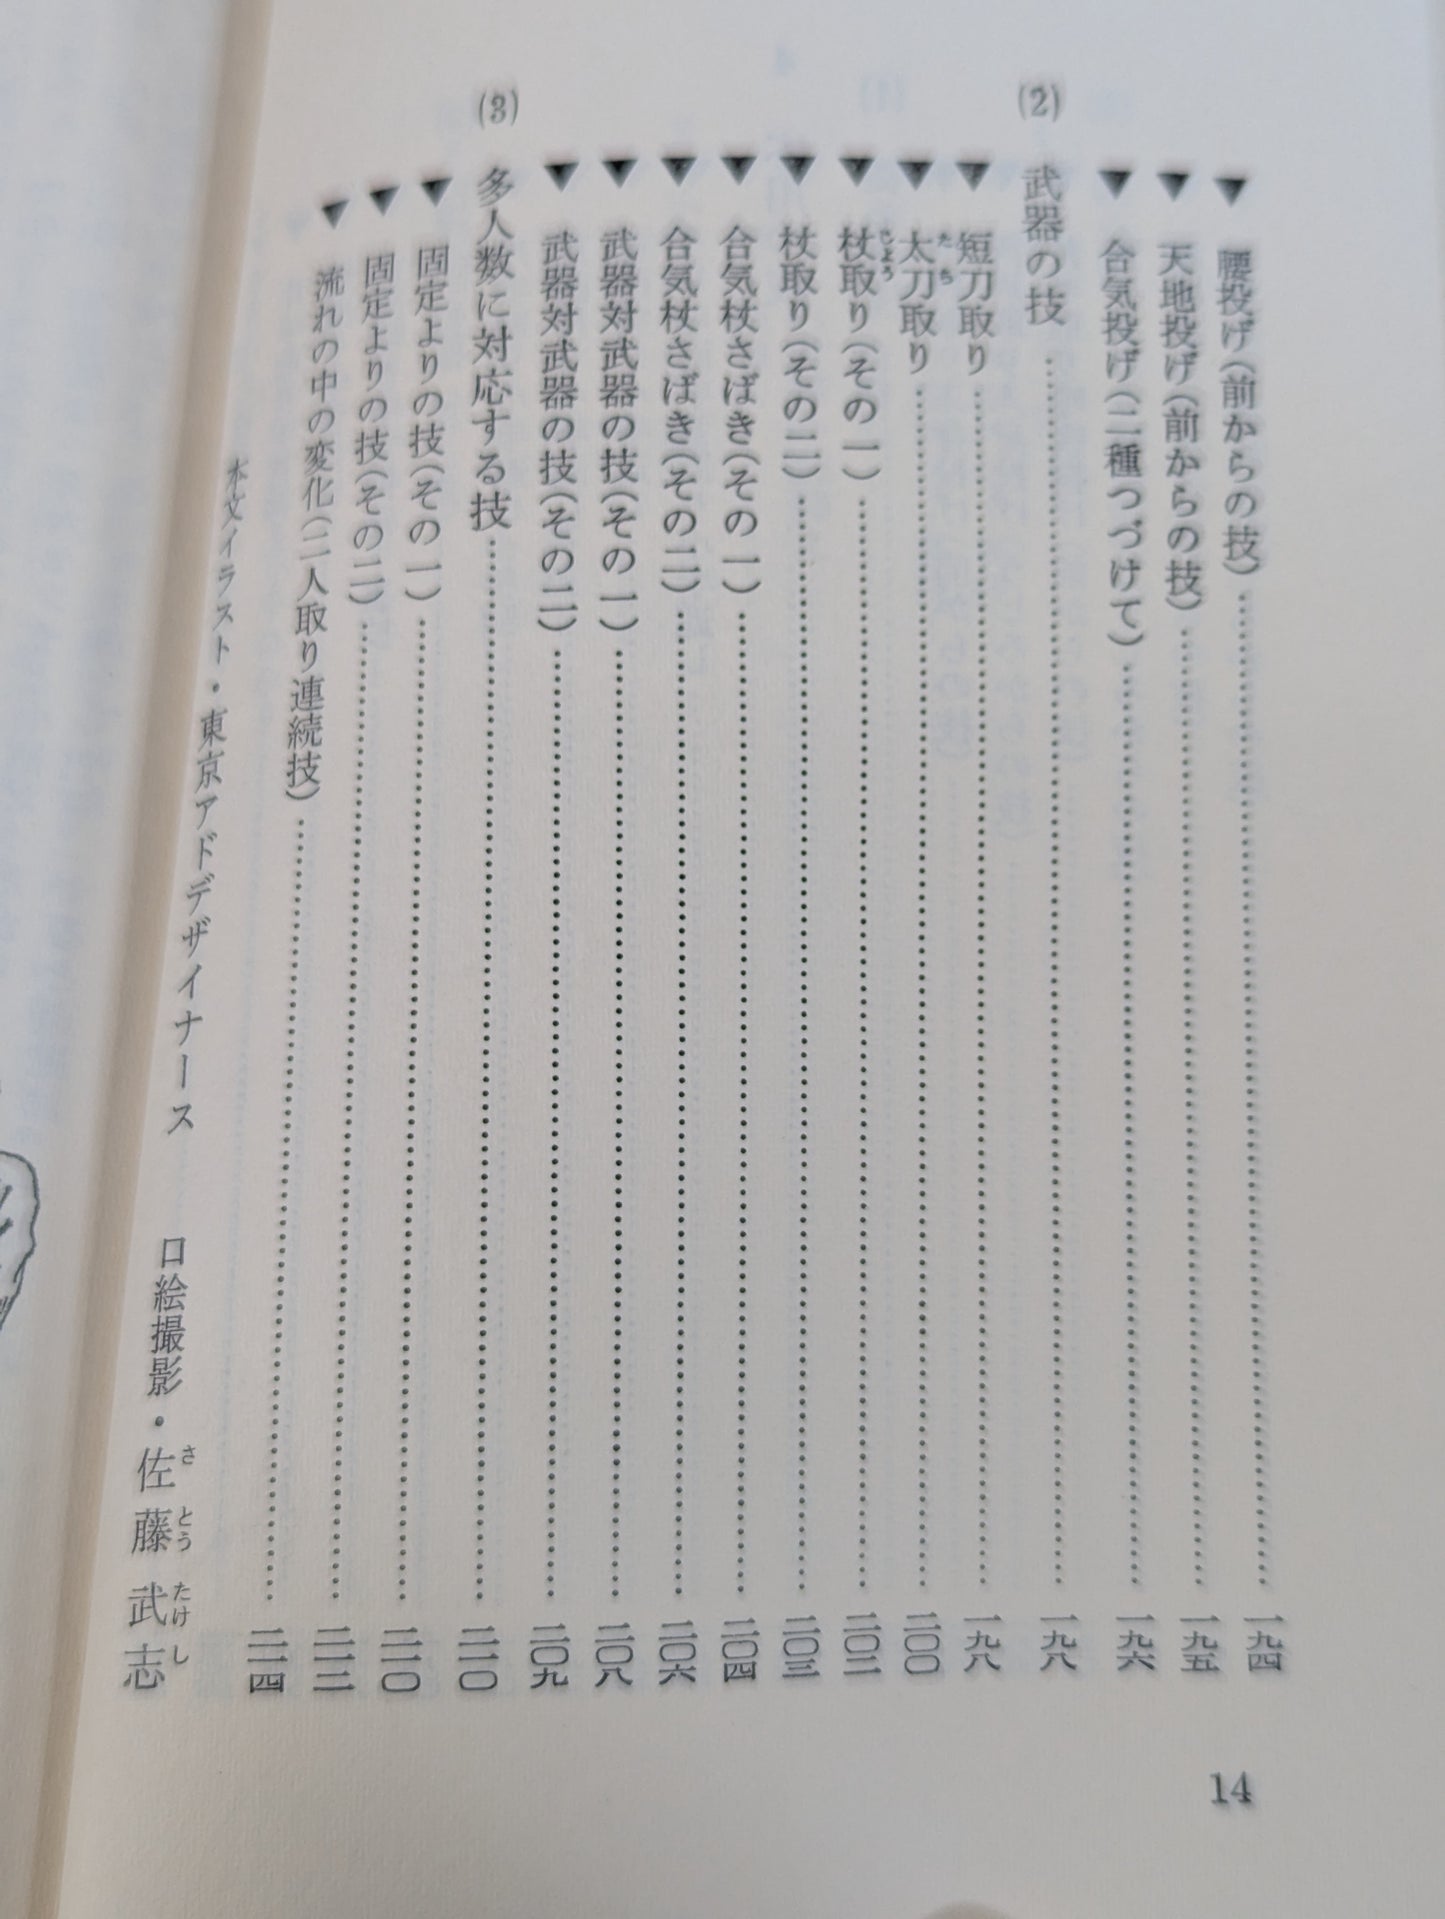 ▼ 腰投げ(前からの技)……一九四
▼ 天地投げ(前からの技)……一九五
▼ 合気投げ(二種つづけて)……一九六
(2) 武器の技……一九八
▼ 短刀取り……一九八
▼ 太刀取り……二〇〇
たち
▼ 杖取り(その一)……二〇二
じよう
▼ 杖取り(その二)……二〇三
▼ 合気杖さばき(その一)……二〇四
▼ 合気杖さばき(その二)……二〇六
▼ 武器対武器の技(その一)……二〇八
▼ 武器対武器の技(その二)……二〇九
(3) 多人数に対応する技……二一〇
▼ 固定よりの技(その一)……二一〇
▼ 固定よりの技(その二)……二一二
▼ 流れの中の変化(二人取り連続技)……二一四
本文イラスト・東京アドデザイナース
口絵撮影・佐藤武志
さとうたけし
14